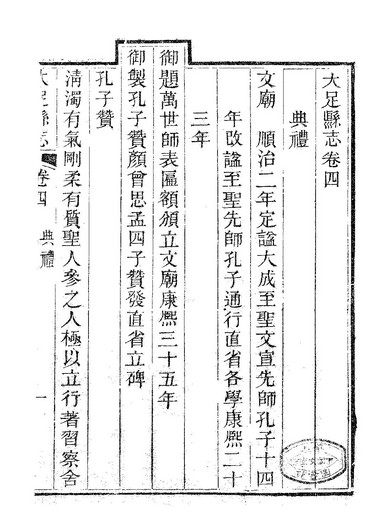 大足縣志卷四
典禮
文廟 順治二年定謚大成至聖文宣先師孔子十四
年改謚至聖先師孔子通行直省各學康熙二十
三年
御題萬世師表匾額頒立文廟康熙三十五年
御製孔子贊顏曾思孟四子贊發直省立碑
孔子贊
清濁有氣剛柔有質聖人參之人極以立行著習察舍
大足縣志 卷四 典禮 一